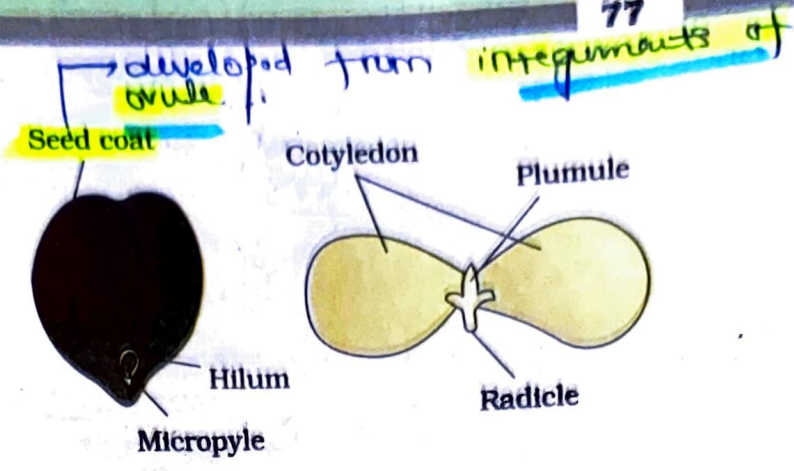 77
→ developed from integuments of
ovule.
Seed coat
Cotyledon
Plumule
Hilum
Radicle
Micropyle